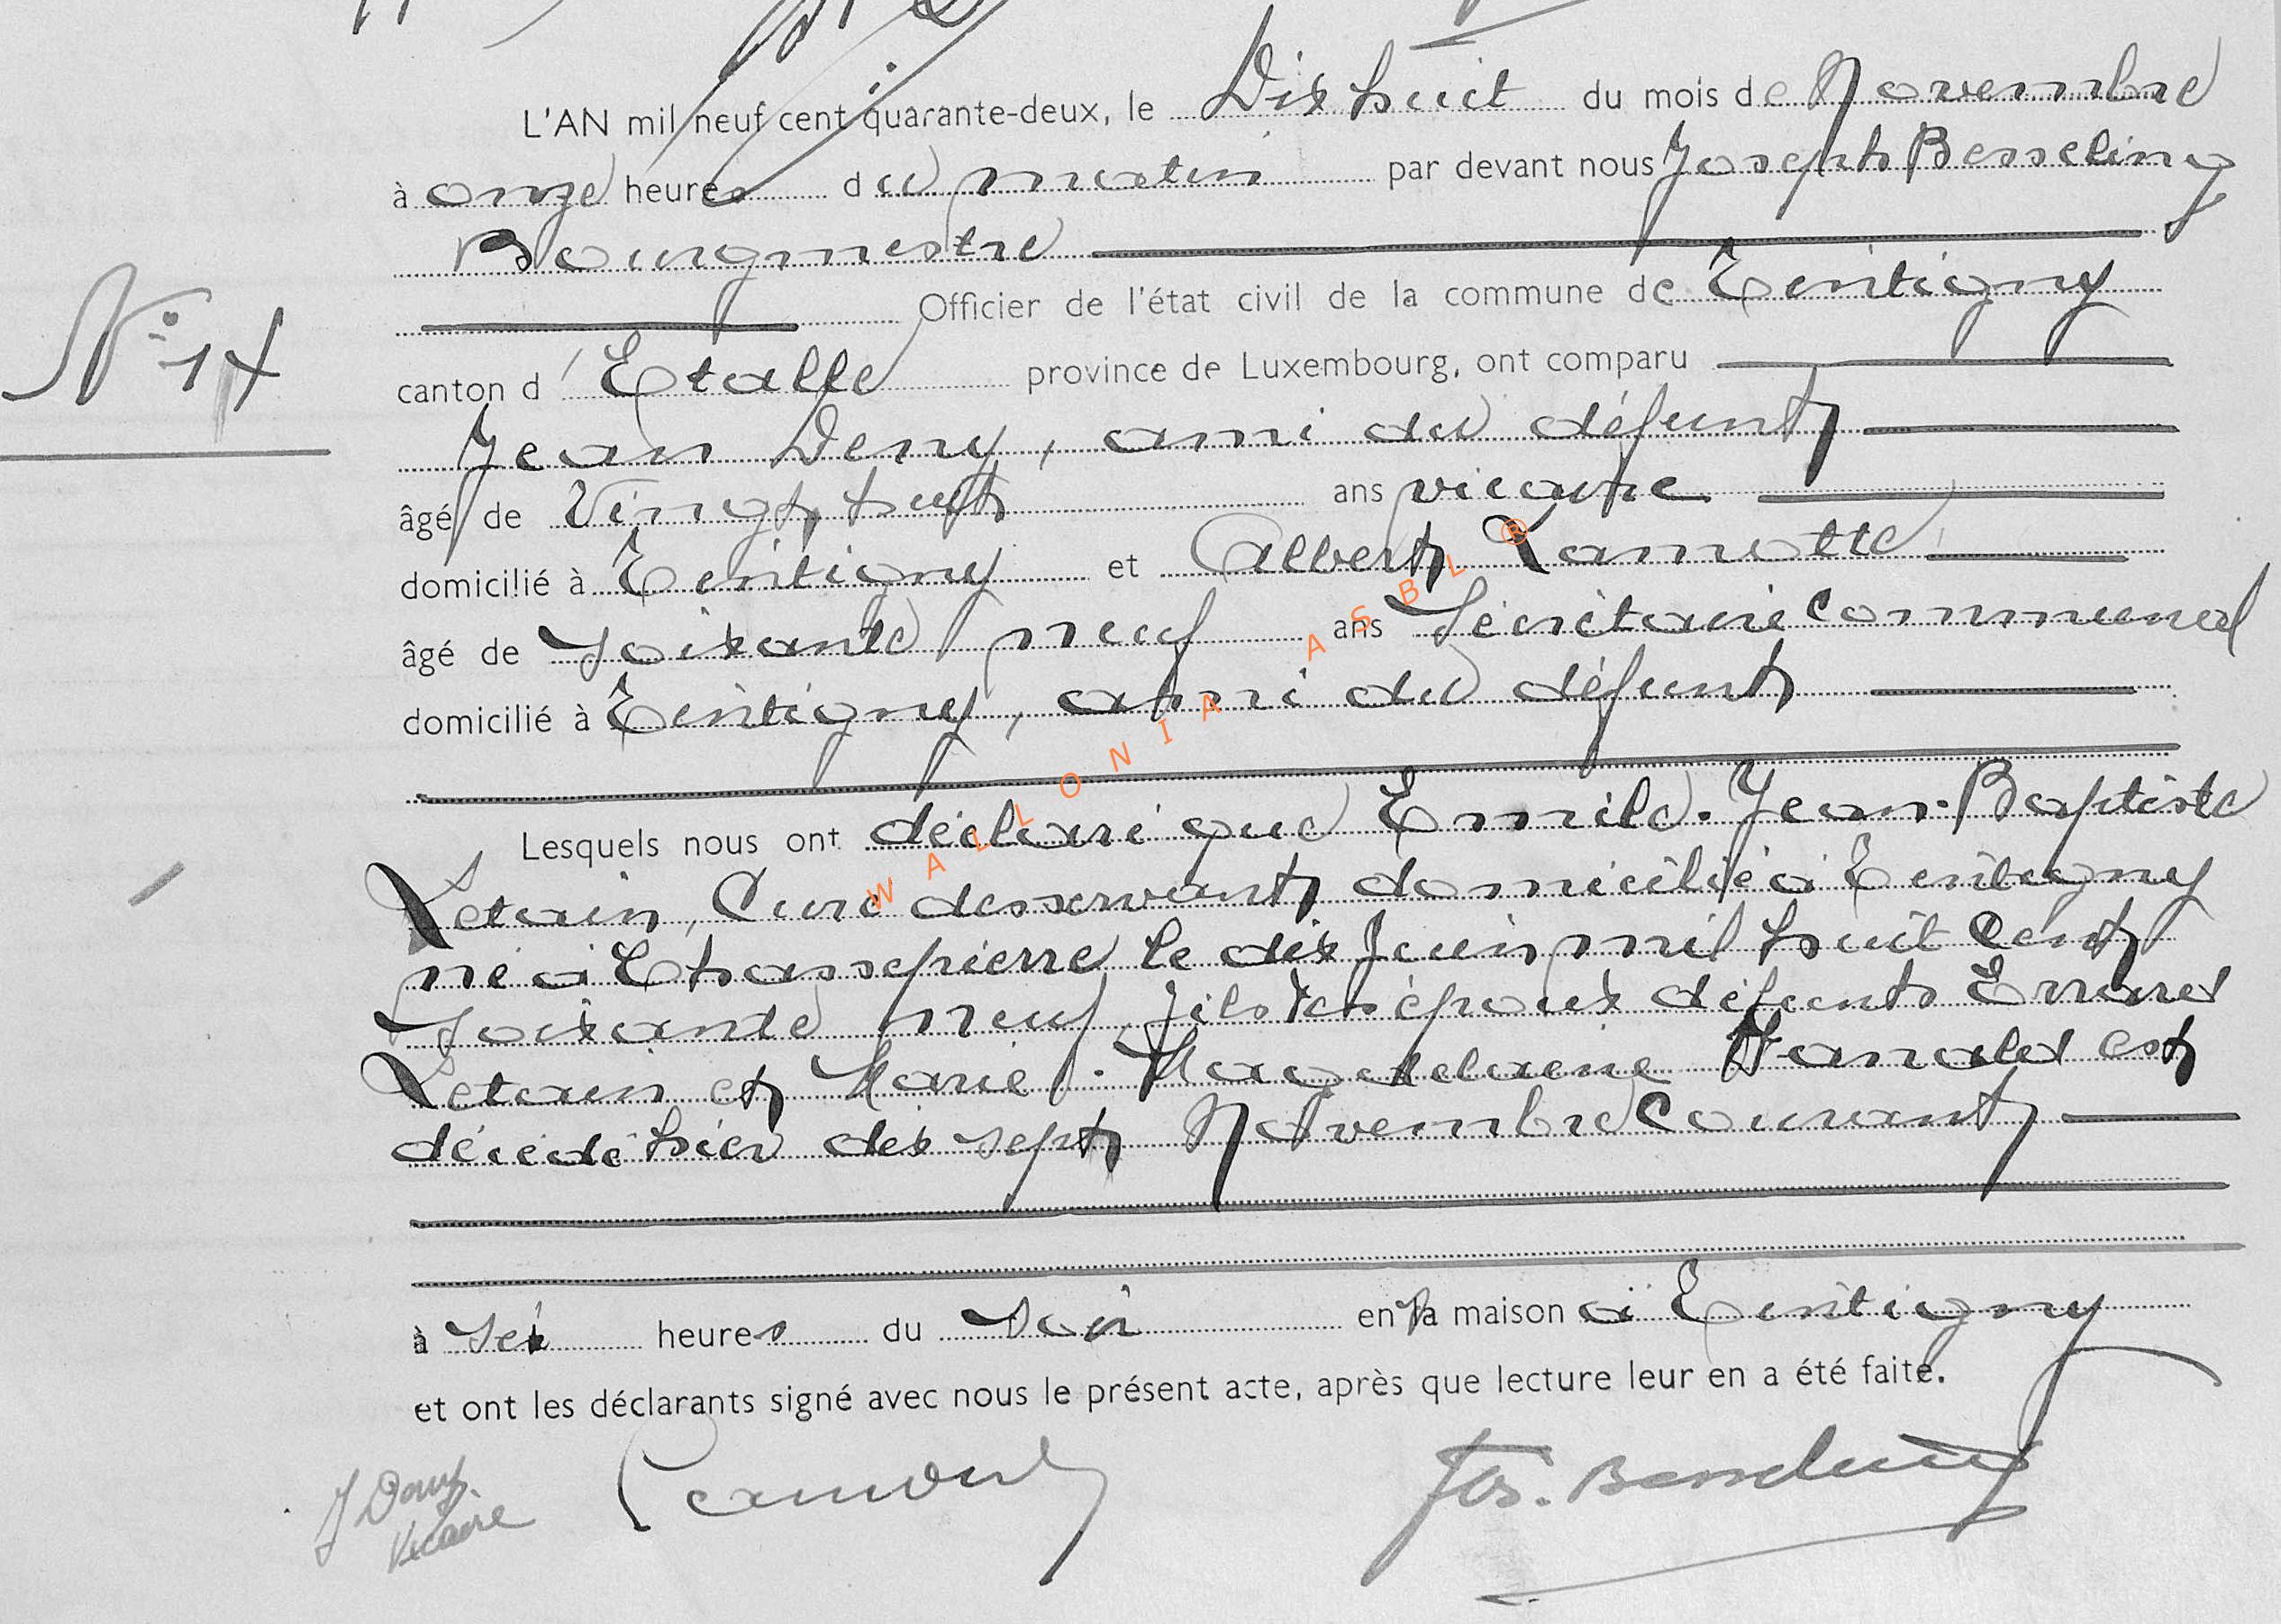 L'AN mil neuf cent quarante-deux, le Dix huit du mois de Novembre
à onze heures du matin par devant nous Joseph Besseling
Bourgmestre
Officier de l'état civil de la commune de Tintigny
N° 14
canton d'Etalle province de Luxembourg, ont comparu
Jean Deny, ami du défunt
âgé de Vingt huit ans vicaire
domicilié à Tintigny et Albert Lamotte
âgé de soixante neuf ans Secrétaire Communal
domicilié à Tintigny, ami du défunt
Lesquels nous ont déclaré que Emile. Jean-Baptiste
Letain, Curé desservant domicilié à Tintigny
né à Chassepierre le dix Juin mil huit Cent
soixante neuf, fils des époux défunts Errard
Letain et Marie. Magdelaine est
décédé hier dix sept Novembre Courant
à six heures du soir en sa maison à Tintigny
et ont les déclarants signé avec nous le présent acte, après que lecture leur en a été faite.
J Deny Lamotte Jos. Besseling
Vicaire
WALLONIA ASBL ®